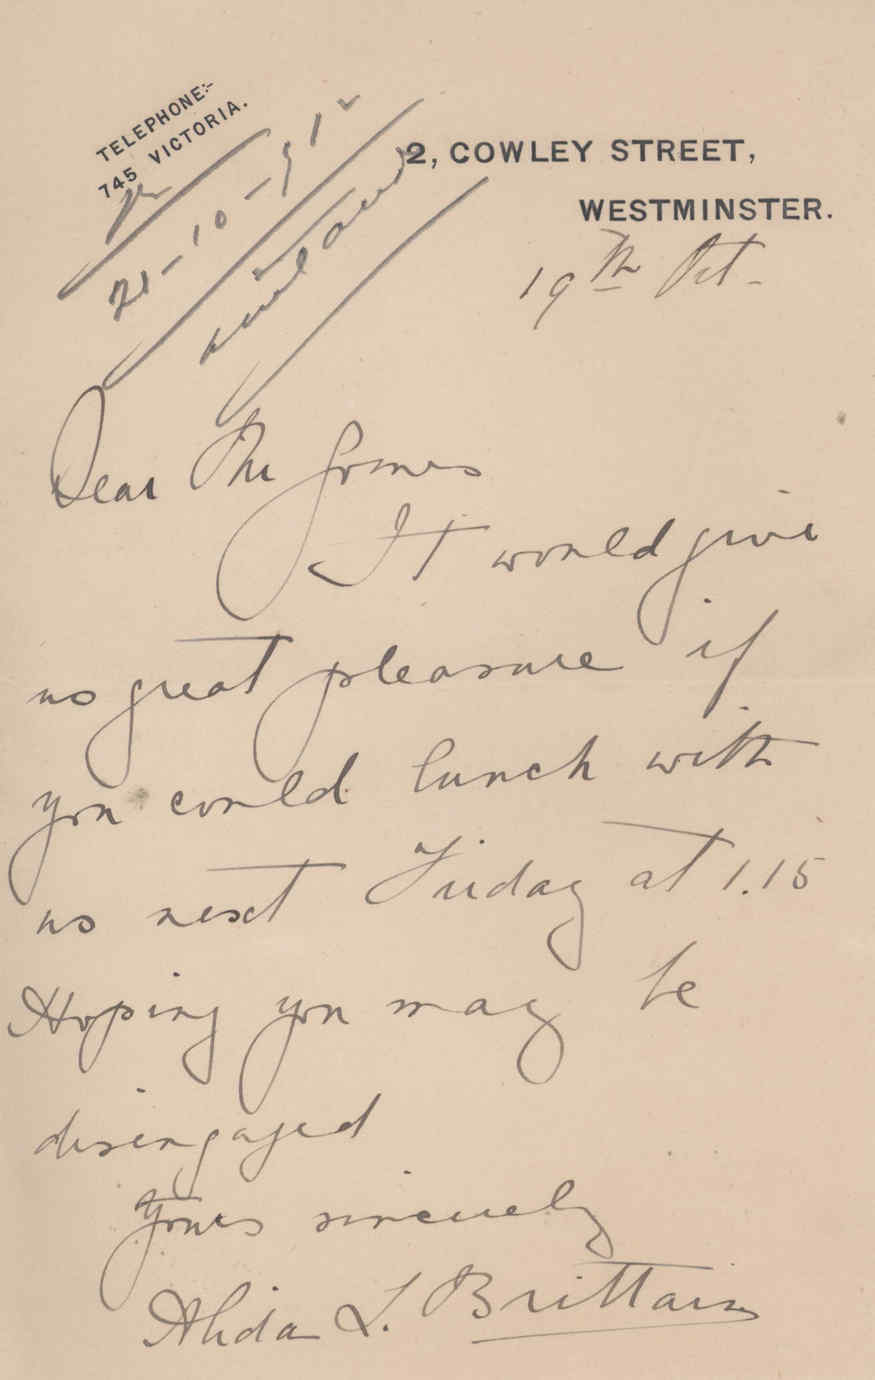 TELEPHONE:-
745 VICTORIA.
2, COWLEY STREET,
WESTMINSTER.
19th Oct -
21-10-
Dear Mr
It would give
us great pleasure if
you could lunch with
us next Friday at 1.15
Hoping you may be
disengaged
Yours sincerely
Alida L. Brittain